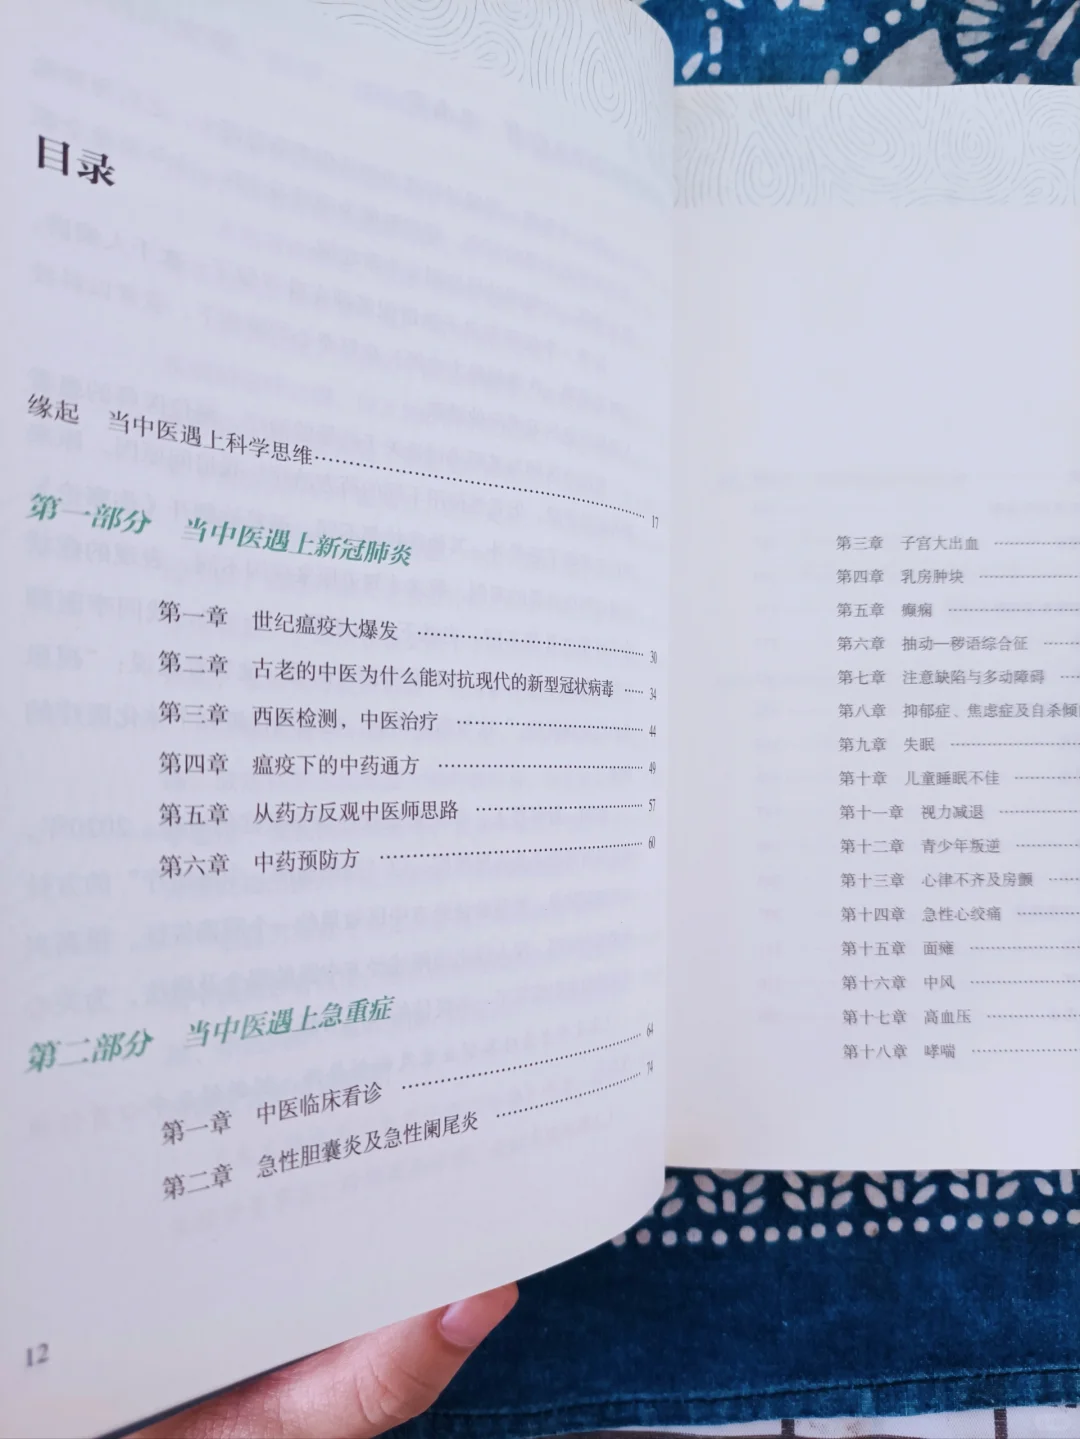 目录
缘起 当中医遇上科学思维 17
第一部分 当中医遇上新冠肺炎
第一章 世纪瘟疫大爆发 30
第二章 古老的中医为什么能对抗现代的新型冠状病毒 34
第三章 西医检测，中医治疗 44
第四章 瘟疫下的中药通方 49
第五章 从药方反观中医师思路 57
第六章 中药预防方 60
第二部分 当中医遇上急重症
第一章 中医临床看诊 64
第二章 急性胆囊炎及急性阑尾炎 74
12
第三章 子宫大出血
第四章 乳房肿块
第五章 癫痫
第六章 抽动—秽语综合征
第七章 注意缺陷与多动障碍
第八章 抑郁症、焦虑症及自杀倾
第九章 失眠
第十章 儿童睡眠不佳
第十一章 视力减退
第十二章 青少年叛逆
第十三章 心律不齐及房颤
第十四章 急性心绞痛
第十五章 面瘫
第十六章 中风
第十七章 高血压
第十八章 哮喘